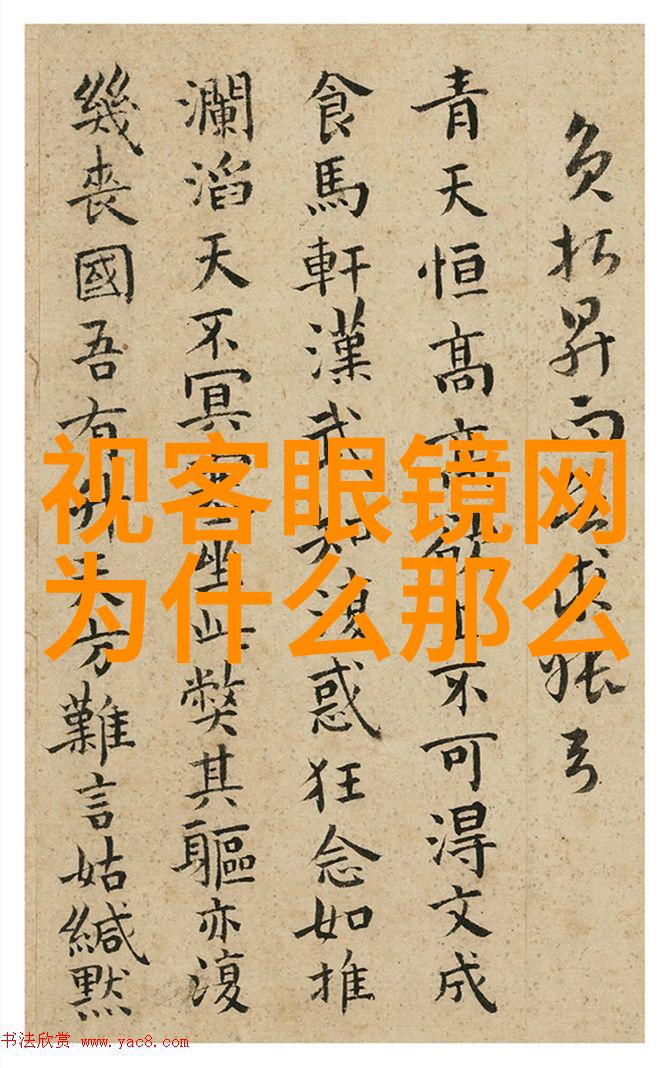 昇
青天恒髙不可淂文成
食馬軒漢武復惑狂念如推
瀾滔天不冥此弊其軀亦復
幾喪國吾有升天方難言姑緘默
视客眼镜网
为什么那么
书法欣赏 www.yac8.com